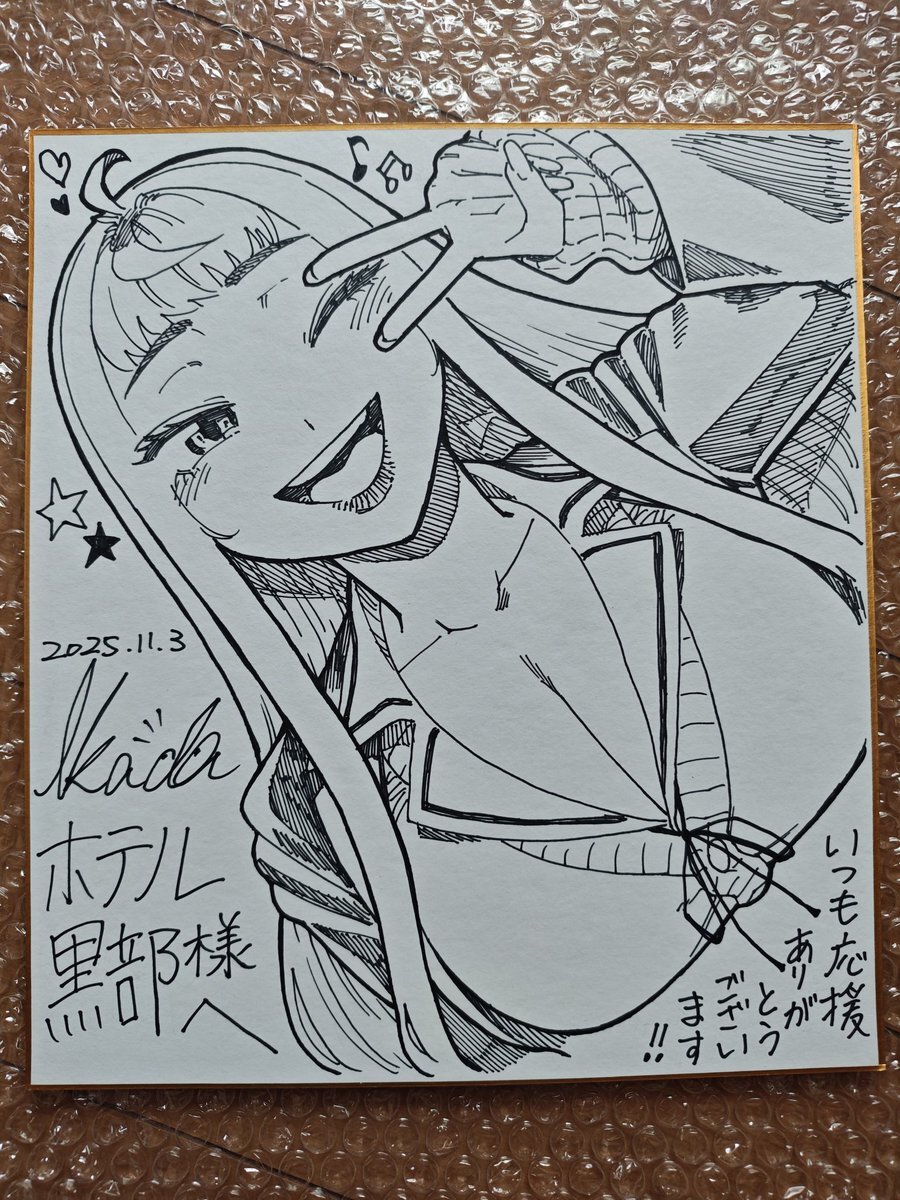 2025.11.3
Kada
ホテル
黒部様
へ
いつも応援
ありが
とう
ござい
ます
!!